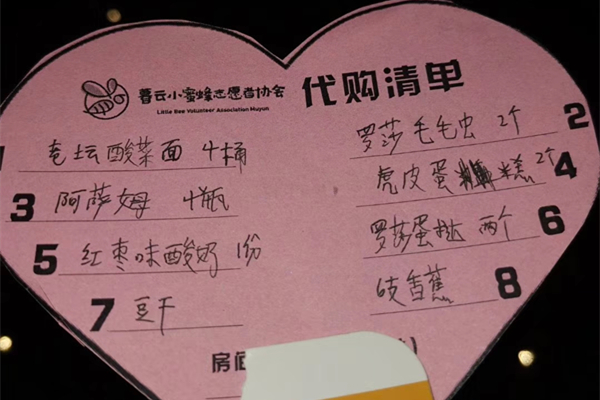 暮云小蜜蜂志愿者协会 代购清单
Little Bee Volunteer Association Muyun
1 老坛酸菜面 4桶
罗莎毛毛虫 2个 2
3 阿萨姆 4瓶
虎皮蛋糕 2个 4
5 红枣味酸奶 1份
罗莎蛋挞 两个 6
7 豆干
吱香蕉 8
房间